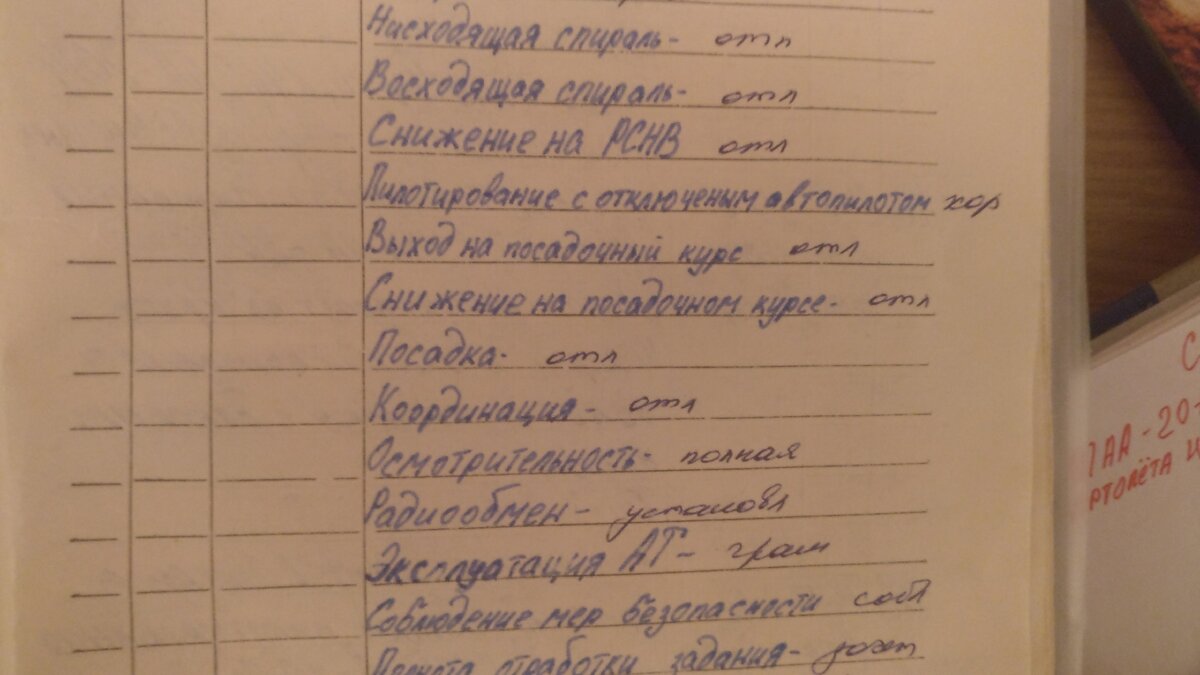 Нисходящая спираль- отл
Восходящая спираль- отл
Снижение на РСНВ отл
Пилотирование с отключеным автопилотом хор
Выход на посадочный курс отл
Снижение на посадочном курсе- отл
Посадка- отл
Координация- отл
Осмотрительность- полная
Радиообмен- установл
Эксплуатация АТ- грам
Соблюдение мер безопасности собл
отработки задания-
С
ТАА-20-